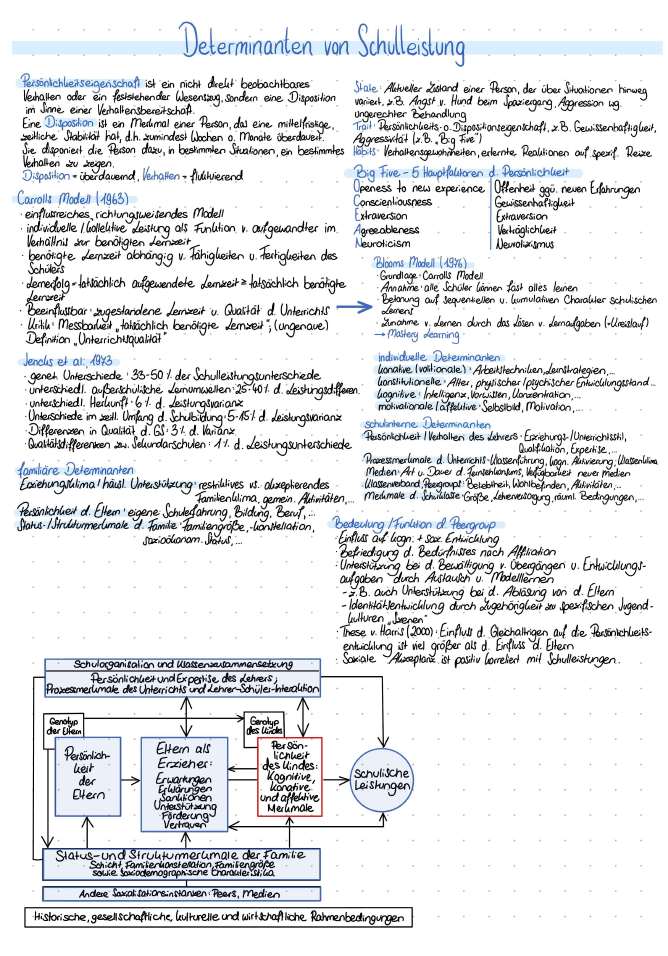 Determinanten von Schulleistung
Persönlichkeitseigenschaft ist ein nicht direkt beobachtbares
Verhalten oder ein feststehender Wesenszug, sondern eine Disposition
im Sinne einer Verhaltensbereitschaft.
Eine Disposition ist ein Merkmal einer Person, das eine mittelfristige,
zeitliche Stabilität hat, d.h. zumindest Wochen o. Monate überdauert.
Sie disponiert die Person dazu, in bestimmten Situationen, ein bestimmtes
Verhalten zu zeigen.
Disposition = überdauernd, Verhalten = fluktuierend
Carrolls Modell (1963)
· einflussreiches, richtungsweisendes Modell
· individuelle / kollektive Leistung als Funktion v. aufgewandter im
Verhältnis zur benötigten Lernzeit
· benötigte Lernzeit abhängig v. Fähigkeiten u. Fertigkeiten des
Schülers
· Lernerfolg = tatsächlich aufgewendete Lernzeit ≥ tatsächlich benötigte
Lernzeit
· Beeinflussbar: zugestandene Lernzeit u. Qualität d. Unterrichts
· Kritik: Messbarkeit „tatsächlich benötigte Lernzeit", (ungenaue)
Definition „Unterrichtsqualität"
Jencks et al., 1973
· genet. Unterschiede: 33-50% der Schulleistungsunterschiede
· unterschiedl. außerschulische Lernumwelten: 25-40% d. Leistungsdifferen.
· unterschiedl. Herkunft: 6% d. Leistungsvarianz
· Unterschiede im zeitl. Umfang d. Schulbildung: 5-15% d. Leistungsvarianz
· Differenzen in Qualität d. GS: 3% d. Varianz
· Qualitätsdifferenzen zw. Sekundarschulen: 1% d. Leistungsunterschiede
familiäre Determinanten
Erziehungsklima / häusl. Unterstützung: restriktives vs. akzeptierendes
Familienklima, gemein. Aktivitäten,...
Persönlichkeit d. Eltern: eigene Schulerfahrung, Bildung, Beruf,...
Status-/Strukturmerkmale d. Familie: Familiengröße, -konstellation,
sozioökonom. Status,...
State: Aktueller Zustand einer Person, der über Situationen hinweg
variiert, z.B. Angst v. Hund beim Spaziergang, Aggression wg.
ungerechter Behandlung
Trait: Persönlichkeits- o. Dispositionseigenschaft, z.B. Gewissenhaftigkeit,
Aggressivität (z.B. „Big Five")
Habits: Verhaltensgewohnheiten, erlernte Reaktionen auf spezif. Reize
Big Five - 5 Hauptfaktoren d. Persönlichkeit
Openess to new experience | Offenheit ggü. neuen Erfahrungen
Conscientiousness | Gewissenhaftigkeit
Extraversion | Extraversion
Agreeableness | Verträglichkeit
Neuroticism | Neurotizismus
Blooms Modell (1976)
· Grundlage: Carrolls Modell
· Annahme: alle Schüler können fast alles lernen
· Betonung auf sequentiellen u. kumulativen Charakter schulischen
Lernens
· Zunahme v. Lernen durch das Lösen v. Lernaufgaben (→Kreislauf)
→ Mastery Learning
individuelle Determinanten
konative (volitionale): Arbeitstechniken, Lernstrategien,...
konstitutionelle: Alter, physischer / psychischer Entwicklungsstand...
kognitive: Intelligenz, Vorwissen, Konzentration,...
motivationale / affektive: Selbstbild, Motivation,...
schulinterne Determinanten
Persönlichkeit / Verhalten des Lehrers: Erziehungs-/Unterrichtsstil,
Qualifikation, Expertise,...
Prozessmerkmale d. Unterrichts: Klassenführung, kogn. Aktivierung, Klassenklima
Medien: Art u. Dauer d. Fernsehkonsums, Verfügbarkeit neuer Medien
Klassenverband, Peergroups: Beliebtheit, Wohlbefinden, Aktivitäten,...
Merkmale d. Schulklasse: Größe, Lehrerversorgung, räuml. Bedingungen,...
Bedeutung / Funktion d. Peergroup
· Einfluss auf kogn. + soz. Entwicklung
· Befriedigung d. Bedürfnisses nach Affiliation
· Unterstützung bei d. Bewältigung v. Übergängen u. Entwicklungs-
aufgaben durch Austausch u. Modelllernen
- z.B. auch Unterstützung bei d. Ablösung von d. Eltern
- Identitätsentwicklung durch Zugehörigkeit zu spezifischen Jugend-
kulturen „Szenen"
· These v. Harris (2000): Einfluss d. Gleichaltrigen auf die Persönlichkeits-
entwicklung ist viel größer als d. Einfluss d. Eltern
· Soziale Akzeptanz ist positiv korreliert mit Schulleistungen.
Schulorganisation und Klassenzusammensetzung
Persönlichkeit und Expertise des Lehrers;
Prozessmerkmale des Unterrichts und Lehrer-Schüler-Interaktion
Genotyp
der Eltern
Genotyp
des Kindes
Persönlich-
keit
der
Eltern
Eltern als
Erzieher:
Erwartungen
Erklärungen
Sanktionen
Unterstützung
Förderung
Vertrauen
Persön-
lichkeit
des Kindes:
Kognitive,
konative
und affektive
Merkmale
schulische
Leistungen
Status- und Strukturmerkmale der Familie
Schicht, Familienkonstellation, Familiengröße
sowie soziodemographische Charakteristika
Andere Sozialisationsinstanzen: Peers, Medien
Historische, gesellschaftliche, kulturelle und wirtschaftliche Rahmenbedingungen